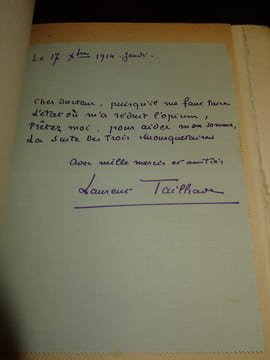 Le 17 Xbre 1914. Jeudi.
Cher Docteur, puisqu'il me faut taire
L'état où m'a réduit l'opium,
Prêtez moi, pour aider mon somme,
La Suite des Trois Mousquetaires
Avec mille mercis et amitiés
Laurent Tailhade